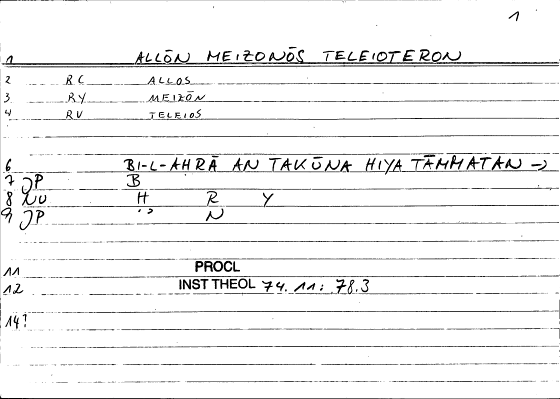 1
1 ALLŌN MEIZONŌS TELEIOTERON
2 RC ALLOS
3 RY MEIZŌN
4 RV TELEIOS
6 BI-L-AHRĀ AN TAKŪNA HIYA TĀMMATAN →
7 JP B
8 NU H R Y
9 JP " N
11 PROCL
12 INST THEOL 74.11: 78.3
14?